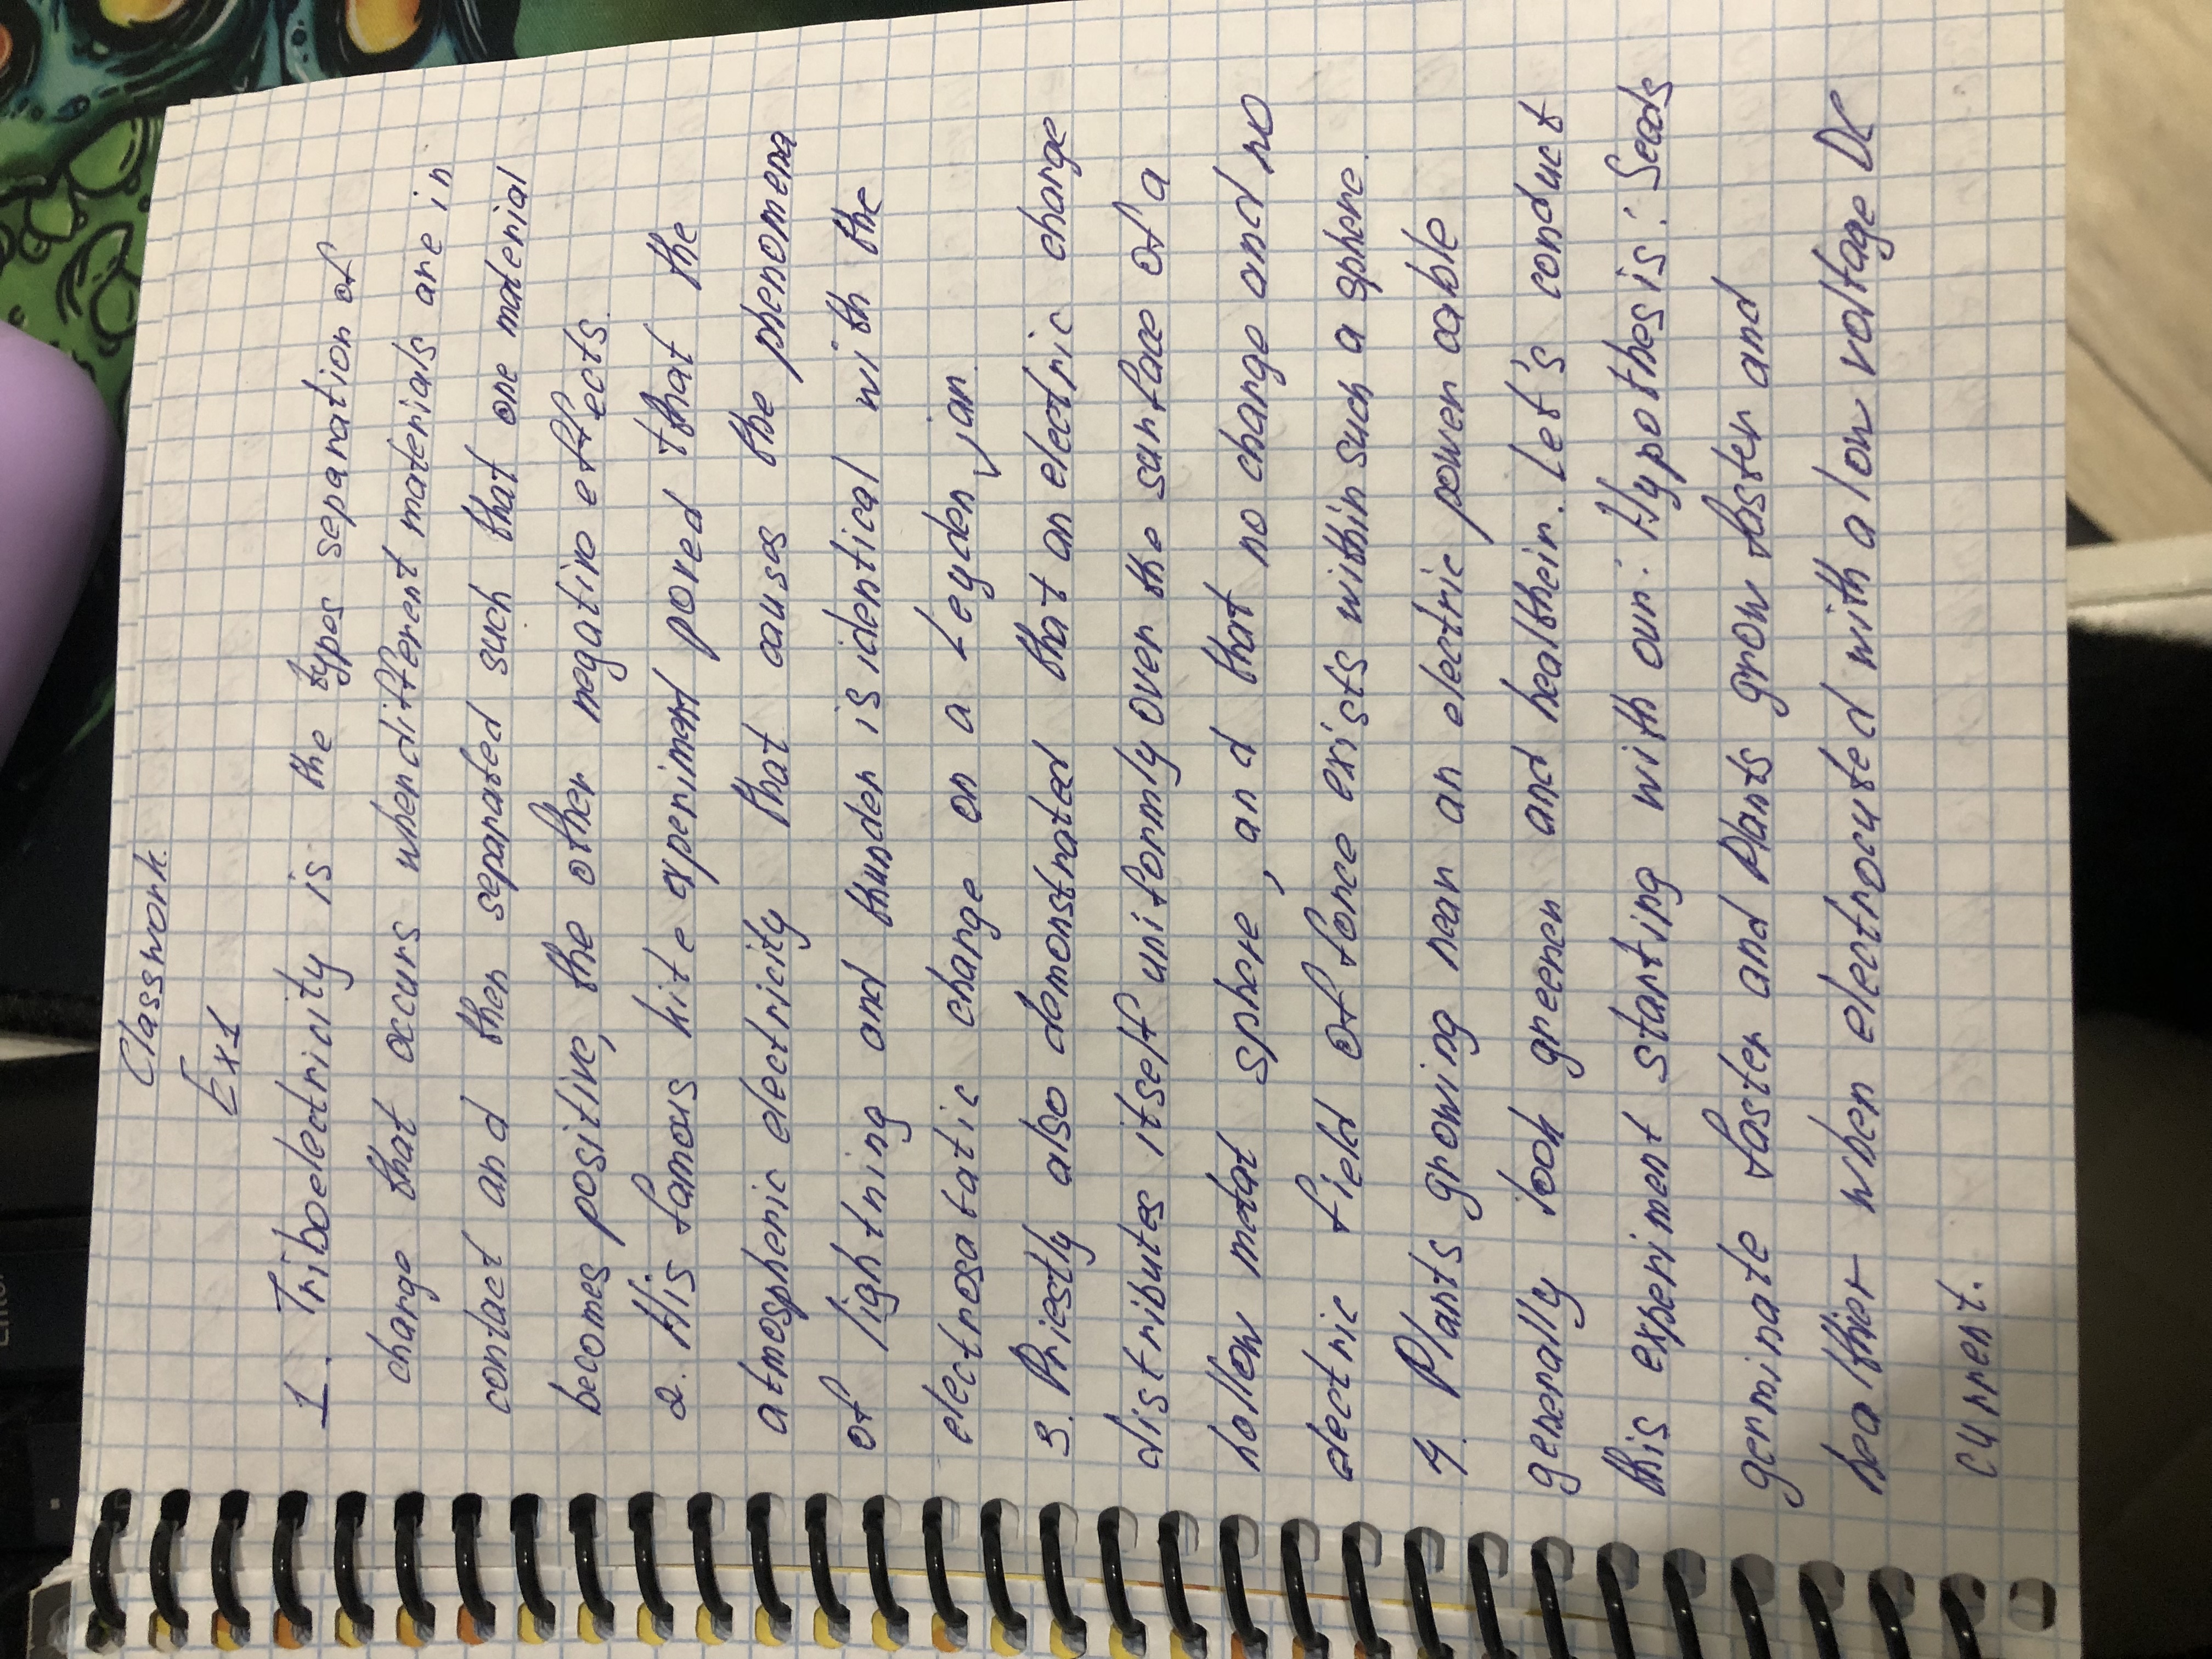 Classwork.
Ex1
1. Triboelectricity is the types separation of
charge that occurs when different materials are in
contact and then separated such that one material
becomes positive, the other negative effects.
2. His famous kite experiment pored that the
atmospheric electricity that causes the phenomena
of lightning and thunder is identical with the
electrosatatic charge on a Leyden jar.
3. Priestly also demonstrated that an electric charge
distributes itself uniformly over the surface of a
hollow metal sphere, and that no charge and no
electric field of force exists within such a sphere.
4. Plants growing near an electric power cable
generally look greener and healtheir. Let's conduct
this experiment starting with our: Hypothesis: Seeds
germinate faster and Plants grow faster and
healthier when electrocuted with a low voltage DC
current.